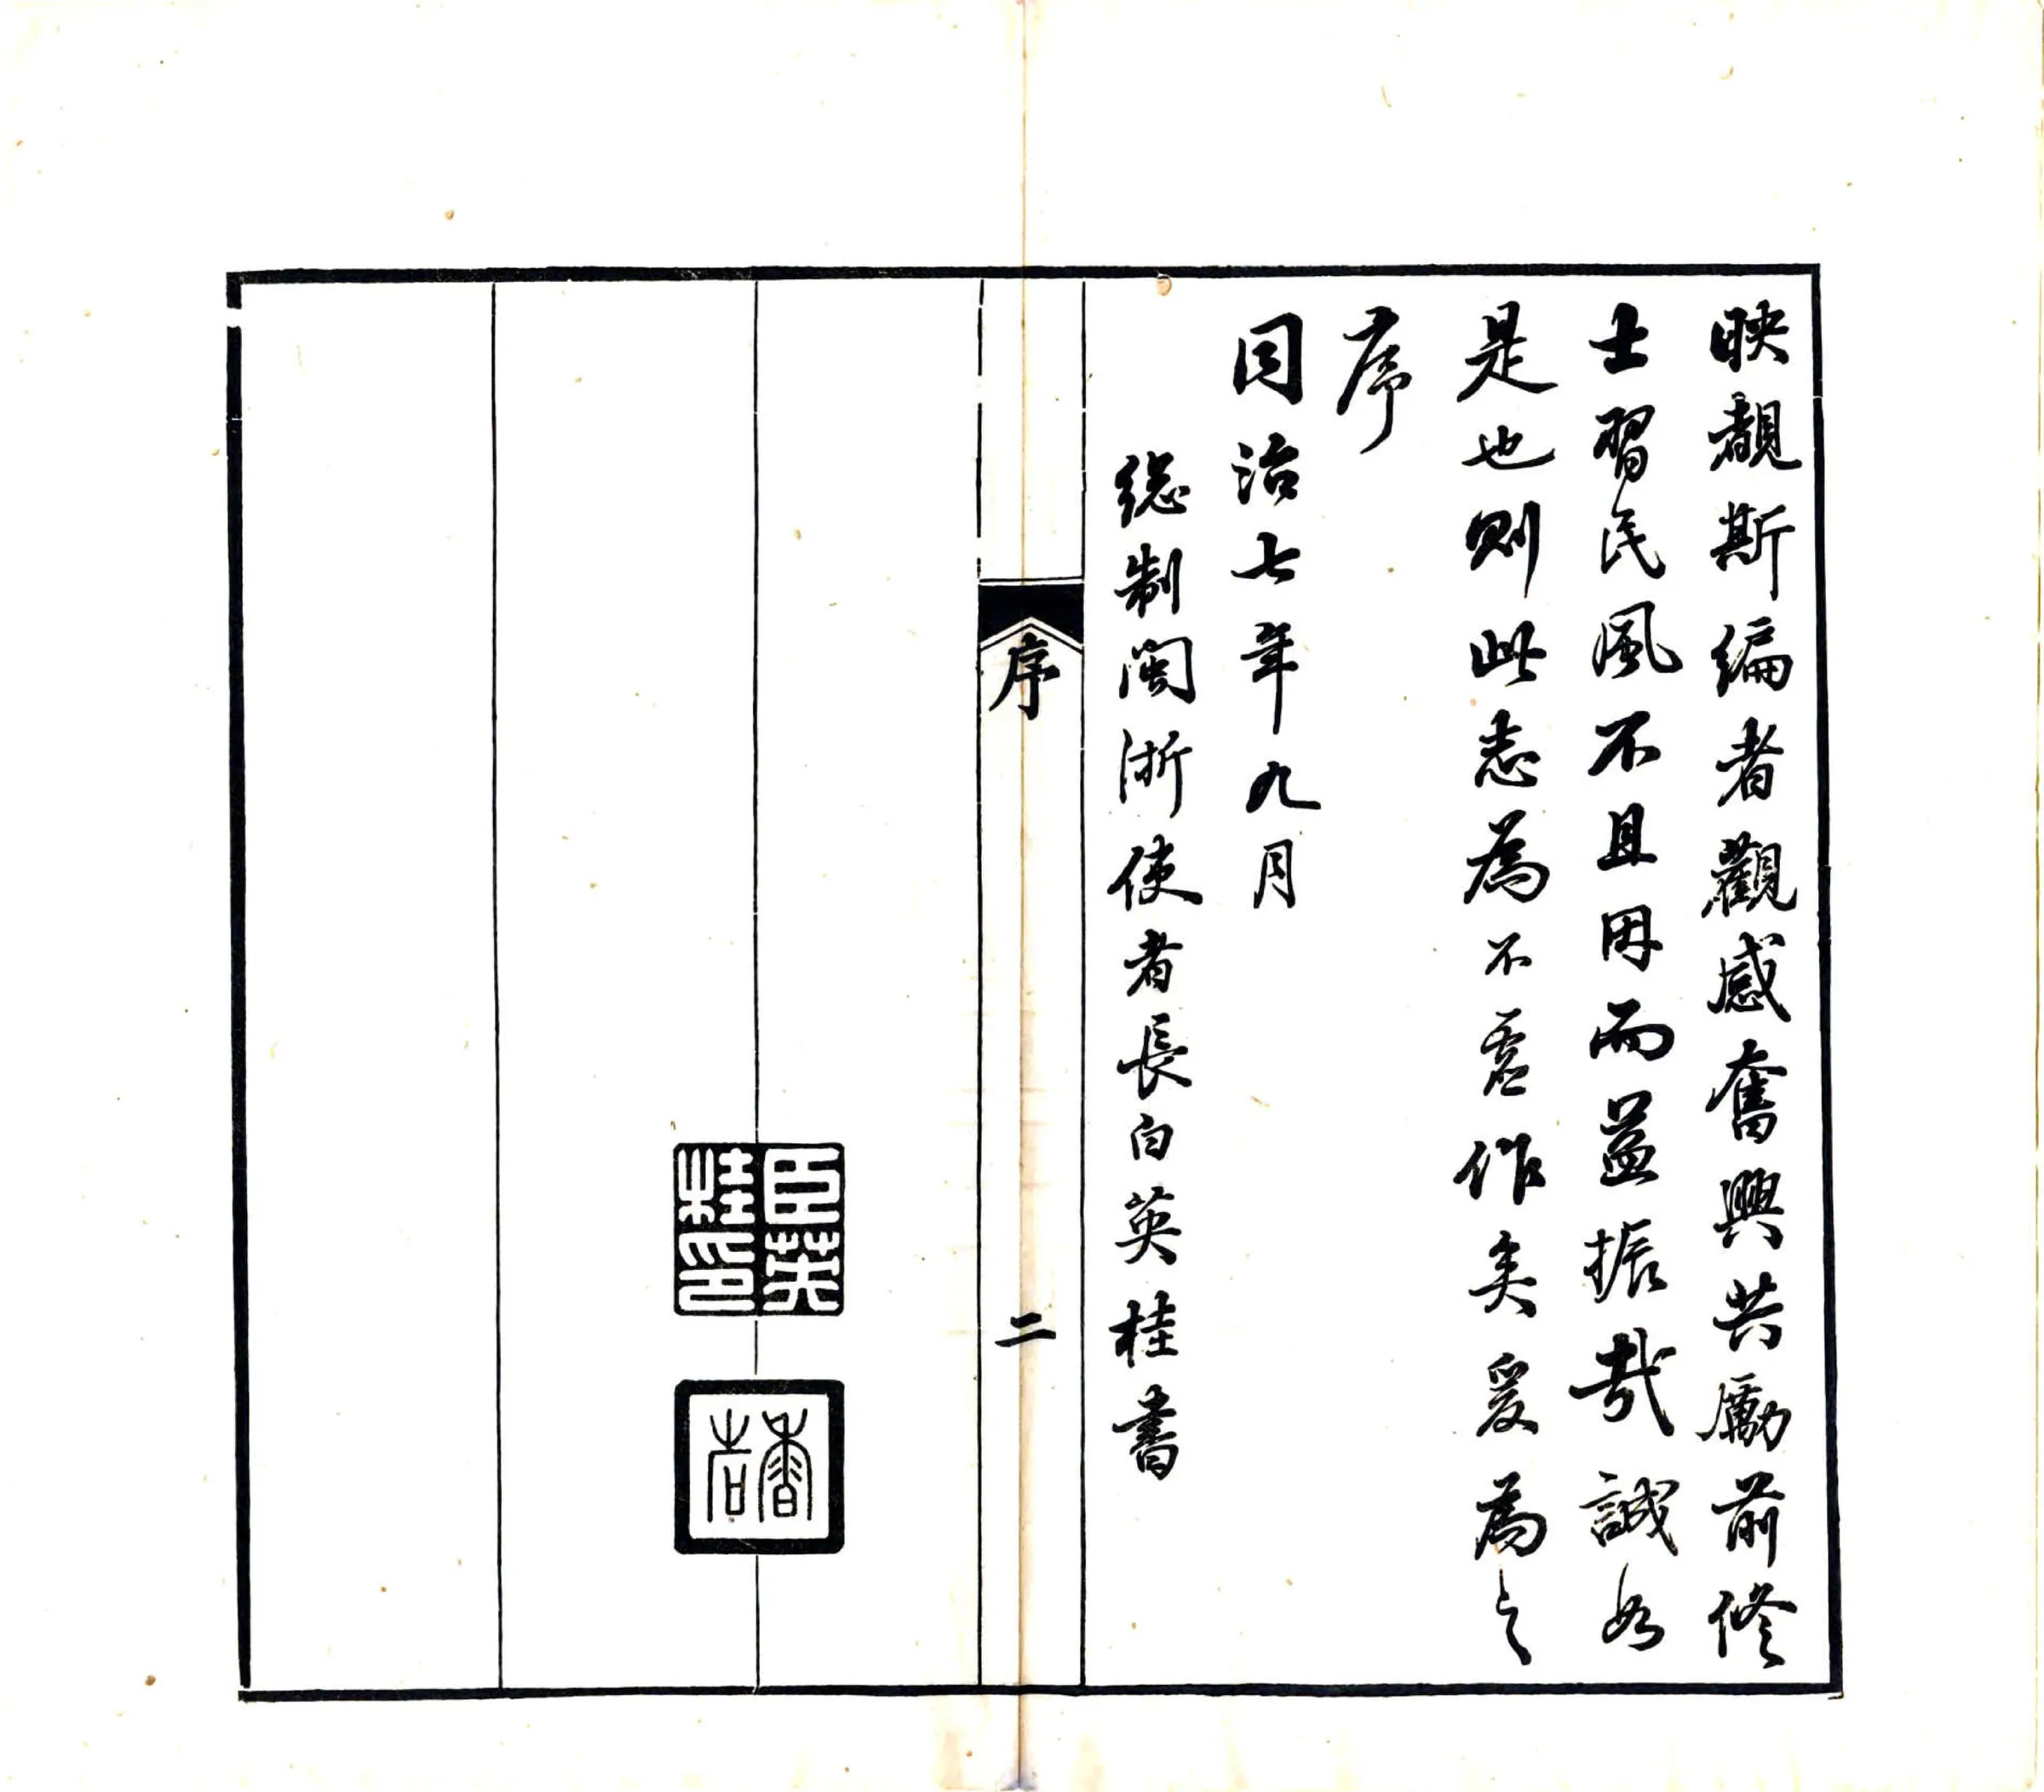 映覩斯編者觀感奮興共勵前修
士習民風不且因而益振哉誠如
是也則此志為不虛作矣爰為之
序
同治七年九月
總制閩浙使者長白英桂書
序
二
臣英桂印
香岩